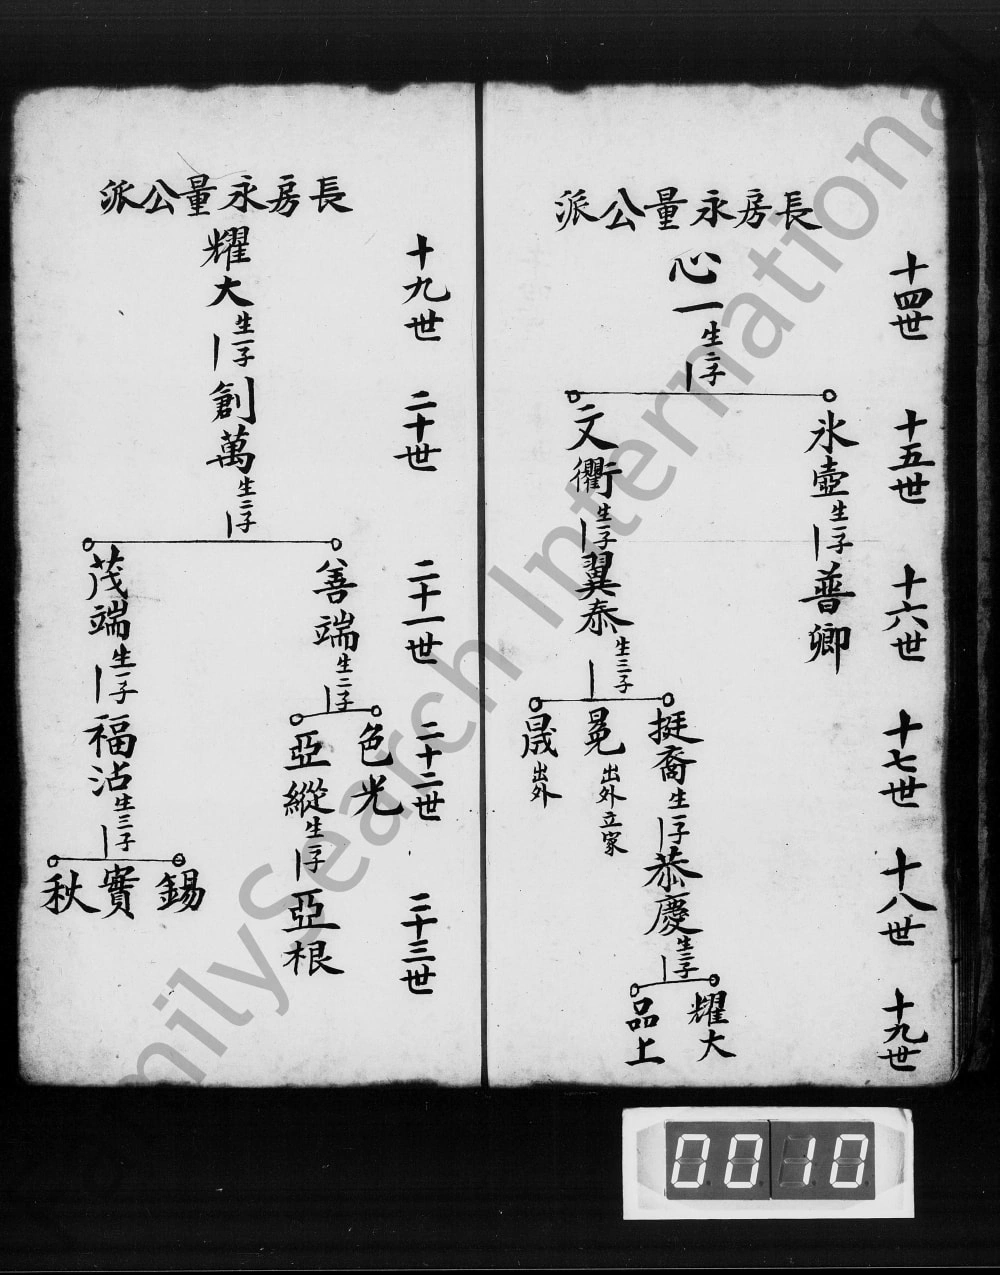 長房永量公派
十四世
心一生二子
十五世
氷壺生一子
文衢生一子
十六世
普卿
翼泰生三子
十七世
挺裔生一子
晃出外立家
晟出外
十八世
恭慶生二子
十九世
耀大
品上
長房永量公派
十九世
耀大生一子
二十世
創萬生二子
二十一世
善端生二子
茂端生一子
二十二世
色光
亞縱生一子
福沾生三子
二十三世
亞根
錫
實
秋
0010
FamilySearch International